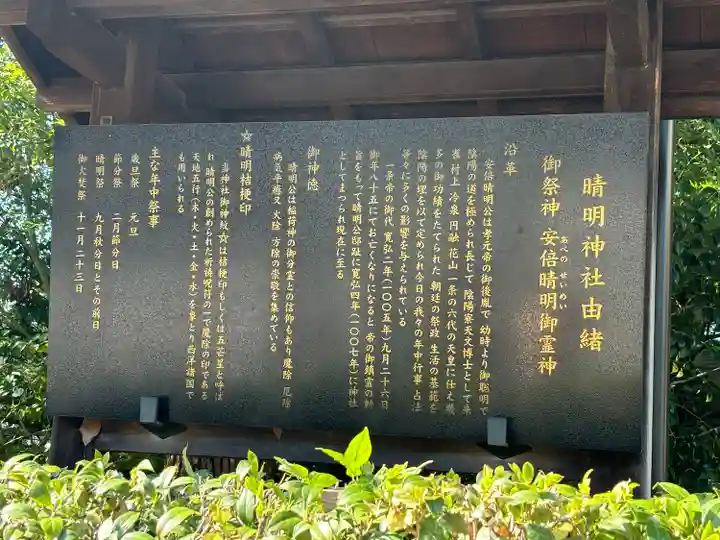 晴明神社由緒
御祭神 安倍晴明御霊神
あべの せいめい
沿革
安倍晴明公は孝元帝の御後胤で 幼時より御聡明で
陰陽の道を極められ長じて 陰陽寮天文博士として朱
雀 村上 冷泉 円融 花山 一条の六代の天皇に仕え 数
多の御功績をたてられた 朝廷の祭政 生活の基範を
陰陽の理を以て定められ今日の我々の年中行事 占法
等々に多くの影響を与えられている
一条帝の御代 寛弘二年(一〇〇五年)九月二十六日
御年八十五にてお亡くなりになると 帝の御鎮霊の勅
旨をもって晴明公邸趾に寛弘四年(一〇〇七年)に神社
としてまつられ現在に至る
御神徳
晴明公は稲荷神の御分霊との信仰もあり魔除 厄除
病気平癒又 火除 方除の崇敬を集めている
☆晴明桔梗印
当神社御神紋☆は桔梗印もしくは五芒星と呼ば
れ 晴明公の創められた祈祷呪符の一で魔除の印である
天地五行(木・火・土・金・水)を象とり西洋諸国で
も用いられる
主な年中祭事
歳旦祭 元旦
節分祭 二月節分日
晴明祭 九月秋分日とその前日
御火焚祭 十一月二十三日